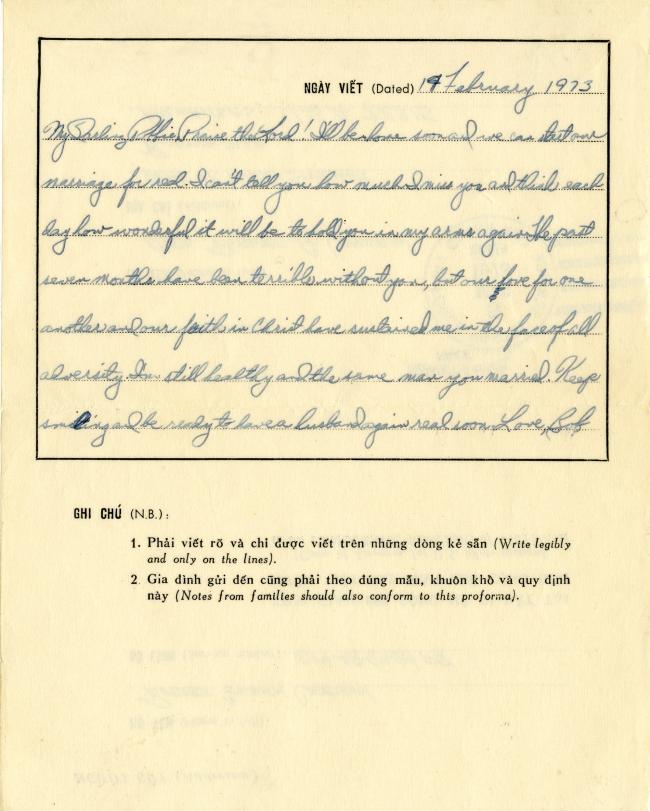 NGÀY VIẾT (Dated) 14 February 1973
My Darling Debbie, Praise the Lord! I'll be home soon and we can start our
marriage for real. I can't tell you how much I miss you and think each
day how wonderful it will be to hold you in my arms again. The past
seven months have been terrible without you, but our love for one
another and our faith in Christ have sustained me in the face of all
adversity. I'm still healthy and the same man you married. Keep
smiling and be ready to have a husband again real soon. Love, Bob
GHI CHÚ (N.B.):
1. Phải viết rõ và chỉ được viết trên những dòng kẻ sẵn (Write legibly
and only on the lines).
2. Gia đình gửi đến cũng phải theo đúng mẫu, khuôn khổ và quy định
này (Notes from families should also conform to this proforma).